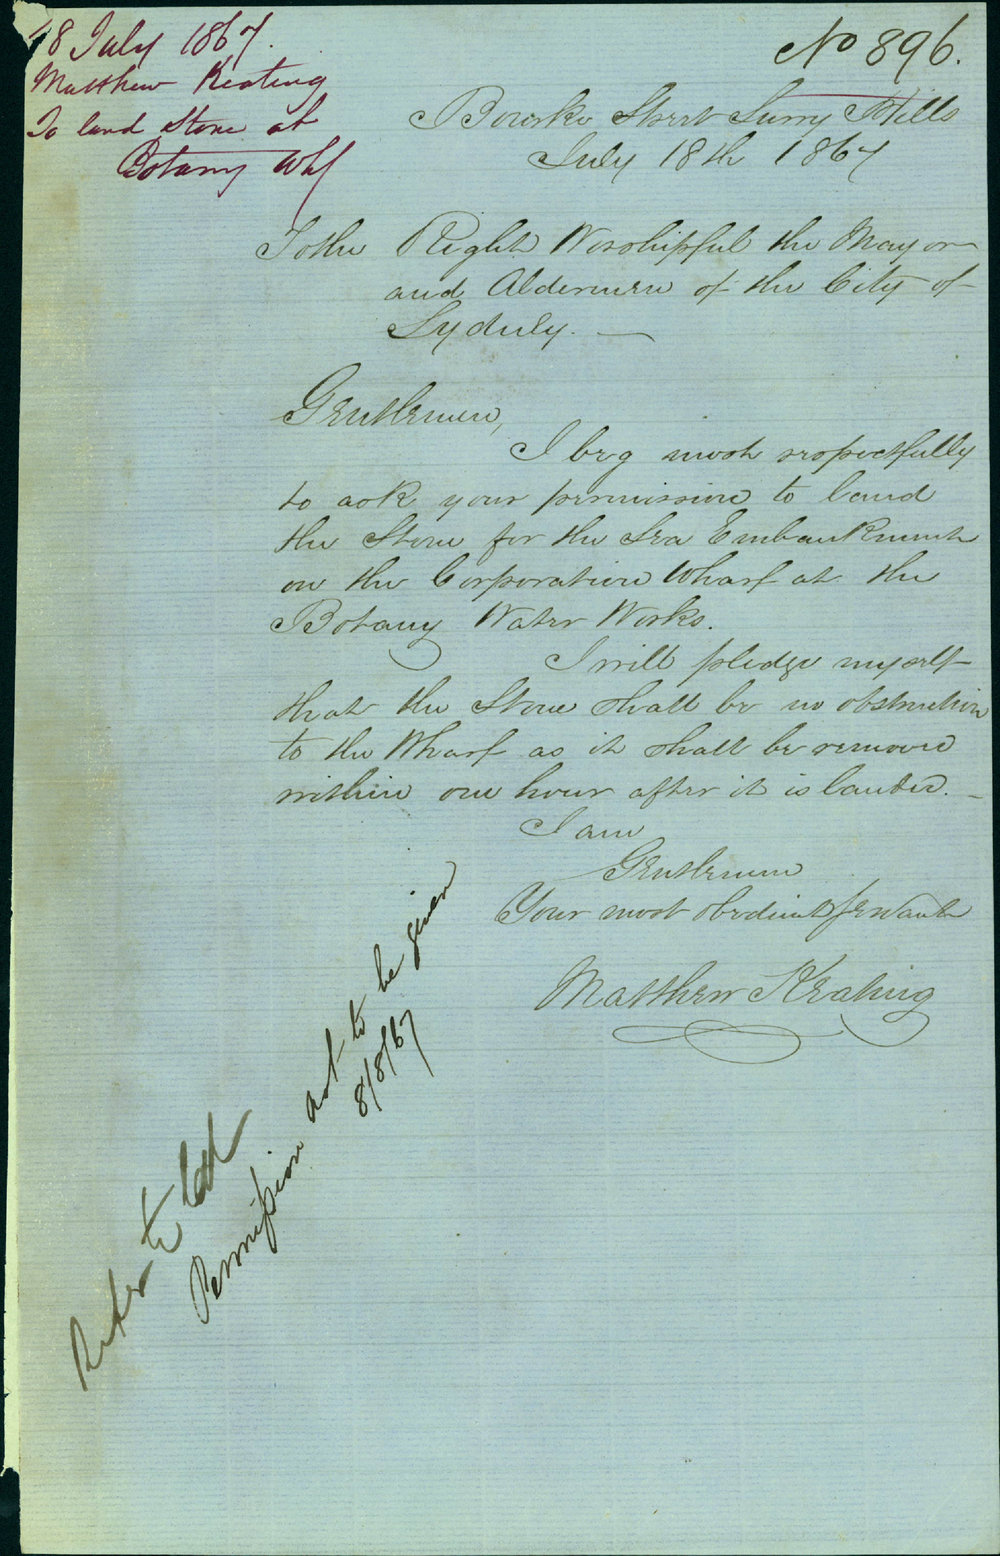 18 July 1867.
Matthew Keating
To land Stone at
Botany Whf
No 896.
Bourke Street Surry Hills
July 18th 1867
To the Right Worshipful the Mayor
and Aldermen of the City of
Sydney.
Gentlemen,
I beg most respectfully
to ask your permission to land
the Stone for the Sea Embankment
on the Corporation Wharf at the
Botany Water Works.
I will pledge myself
that the Stone shall be no obstruction
to the Wharf as it shall be removed
within one hour after it is landed.
I am
Gentlemen
Your most obedient Servant
Matthew Keating
Refer to
Permission not to be given
8/8/67